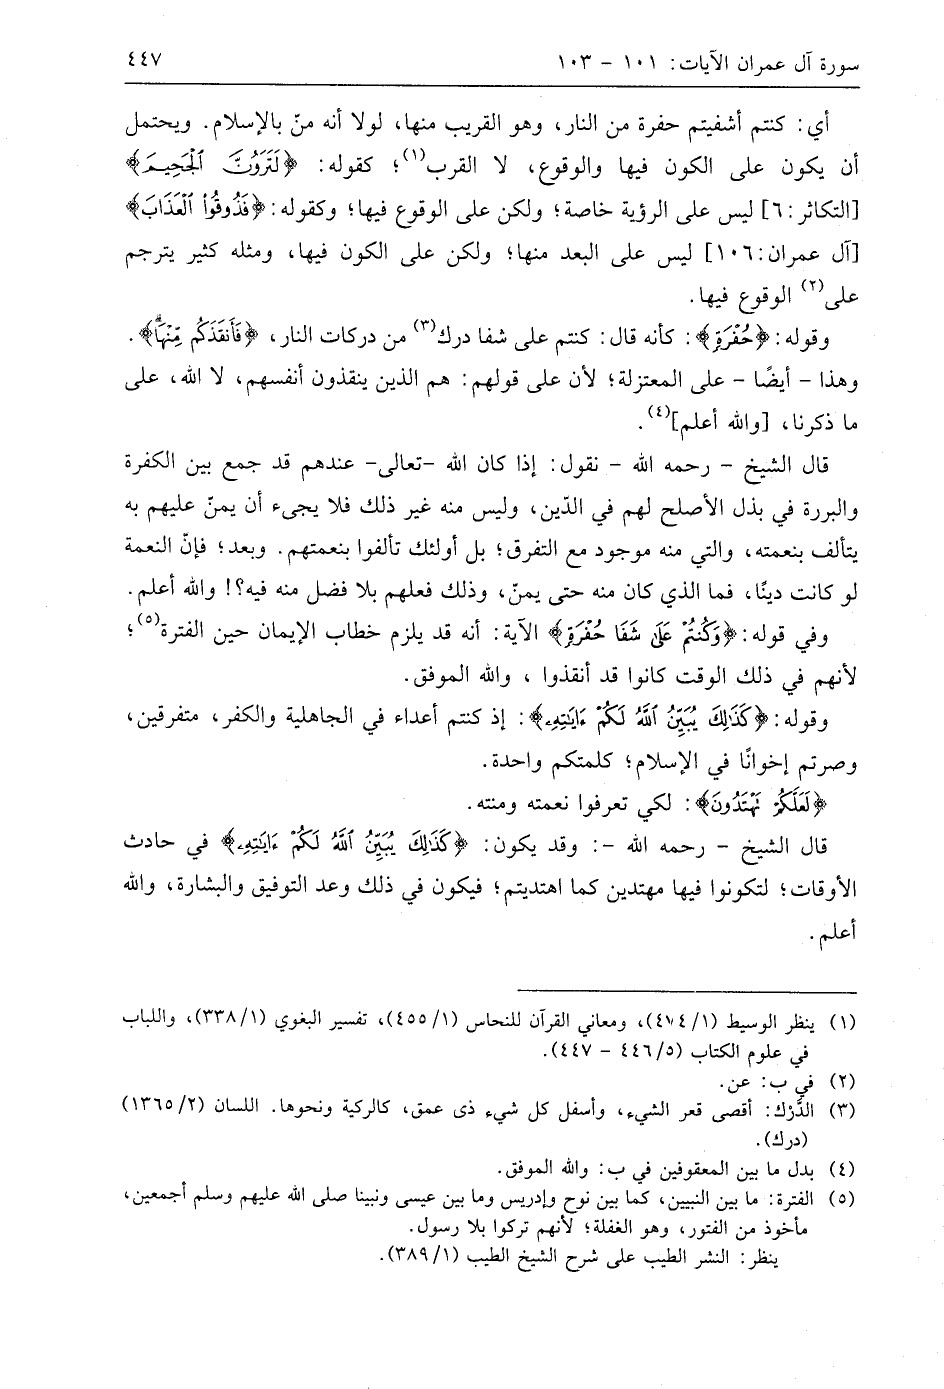 سورة آل عمران الآيات: ١٠١ - ١٠٣ ٤٤٧
أي: كنتم أشفيتم حفرة من النار، وهو القريب منها، لولا أنه منّ بالإسلام. ويحتمل
أن يكون على الكون فيها والوقوع، لا القرب(١)؛ كقوله: ﴿لَتَرَوُنَّ ٱلْجَحِيمَ﴾
[التكاثر:٦] ليس على الرؤية خاصة؛ ولكن على الوقوع فيها؛ وكقوله: ﴿فَذُوقُوا۟ ٱلْعَذَابَ﴾
[آل عمران:١٠٦] ليس على البعد منها؛ ولكن على الكون فيها، ومثله كثير يترجم
على(٢) الوقوع فيها.
وقوله: ﴿حُفْرَةٍ﴾: كأنه قال: كنتم على شفا درك(٣) من دركات النار، ﴿فَأَنقَذَكُم مِّنْهَا﴾.
وهذا - أيضًا - على المعتزلة؛ لأن على قولهم: هم الذين ينقذون أنفسهم، لا الله، على
ما ذكرنا، [والله أعلم](٤).
قال الشيخ - رحمه الله - نقول: إذا كان الله -تعالى- عندهم قد جمع بين الكفرة
والبررة في بذل الأصلح لهم في الدّين، وليس منه غير ذلك فلا يجىء أن يمنّ عليهم به
يتألف بنعمته، والتي منه موجود مع التفرق؛ بل أولئك تألفوا بنعمتهم. وبعد؛ فإنّ النعمة
لو كانت دينًا، فما الذي كان منه حتى يمنّ، وذلك فعلهم بلا فضل منه فيه؟! والله أعلم.
وفي قوله: ﴿وَكُنتُمْ عَلَىٰ شَفَا حُفْرَةٍ﴾ الآية: أنه قد يلزم خطاب الإيمان حين الفترة(٥)؛
لأنهم في ذلك الوقت كانوا قد أنقذوا ، والله الموفق.
وقوله: ﴿كَذَٰلِكَ يُبَيِّنُ ٱللَّهُ لَكُمْ ءَايَٰتِهِۦ﴾: إذ كنتم أعداء في الجاهلية والكفر، متفرقين،
وصرتم إخوانًا في الإسلام؛ كلمتكم واحدة.
﴿لَعَلَّكُمْ تَهْتَدُونَ﴾: لكي تعرفوا نعمته ومنته.
قال الشيخ - رحمه الله -: وقد يكون: ﴿كَذَٰلِكَ يُبَيِّنُ ٱللَّهُ لَكُمْ ءَايَٰتِهِۦ﴾ في حادث
الأوقات؛ لتكونوا فيها مهتدين كما اهتديتم؛ فيكون في ذلك وعد التوفيق والبشارة، والله
أعلم.
(١) ينظر الوسيط (١/ ٤٧٤)، ومعاني القرآن للنحاس (١/ ٤٥٥)، تفسير البغوي (١/ ٣٣٨)، واللباب
في علوم الكتاب (٥/ ٤٤٦ - ٤٤٧).
(٢) في ب: عن.
(٣) الدَّرْك: أقصى قعر الشيء، وأسفل كل شيء ذى عمق، كالركية ونحوها. اللسان (٢/ ١٣٦٥)
(درك).
(٤) بدل ما بين المعقوفين في ب: والله الموفق.
(٥) الفترة: ما بين النبيين، كما بين نوح وإدريس وما بين عيسى ونبينا صلى الله عليهم وسلم أجمعين،
مأخوذ من الفتور، وهو الغفلة؛ لأنهم تركوا بلا رسول.
ينظر: النشر الطيب على شرح الشيخ الطيب (١/ ٣٨٩).